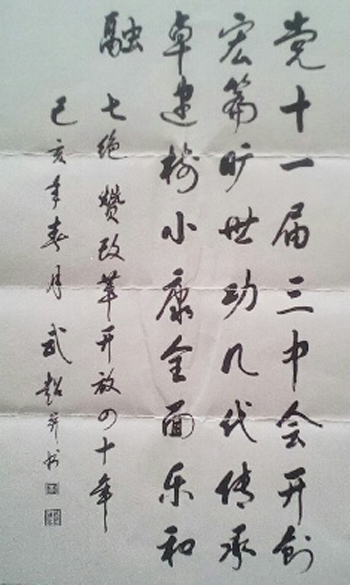 党十一届三中会开创
宏篇旷世功几代传承
卓建树小康全面乐和
融
七绝赞改革开放四十年
己亥年春月武并书